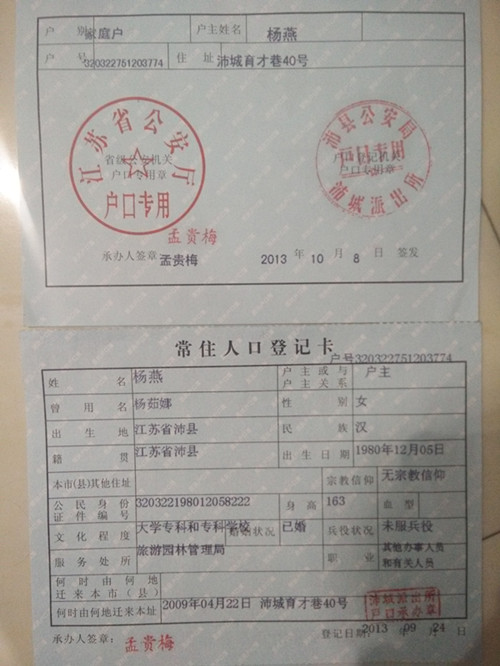 户 别 家庭户 户主姓名 杨燕
户 号 320322751203774 住 址 沛城育才巷40号
江苏省公安厅
户口专用
省级公安机关
户口专用章
沛县公安局
户口专用
沛城派出所
户口登记机关
户口专用章
孟贵梅
承办人签章 孟贵梅 2013 年 10 月 8 日 签发
常住人口登记卡
户号320322751203774
姓 名 杨燕 户主或与户主关系 户主
曾用名 杨茹娜 性 别 女
出生地 江苏省沛县 民 族 汉
籍 贯 江苏省沛县 出生日期 1980年12月05日
本市(县)其他住址 宗教信仰 无宗教信仰
公民身份证件编号 320322198012058222 身 高 163 血 型
文化程度 大学专科和专科学校 婚姻状况 已婚 兵役状况 未服兵役
服务处所 旅游园林管理局 职 业 其他办事人员和有关人员
何时由何地迁来本市(县)
何时由何地迁来本址 2009年04月22日 沛城育才巷40号
沛城派出所
户口承办章
承办人签章：孟贵梅 登记日期：2013 年 09 月 24 日